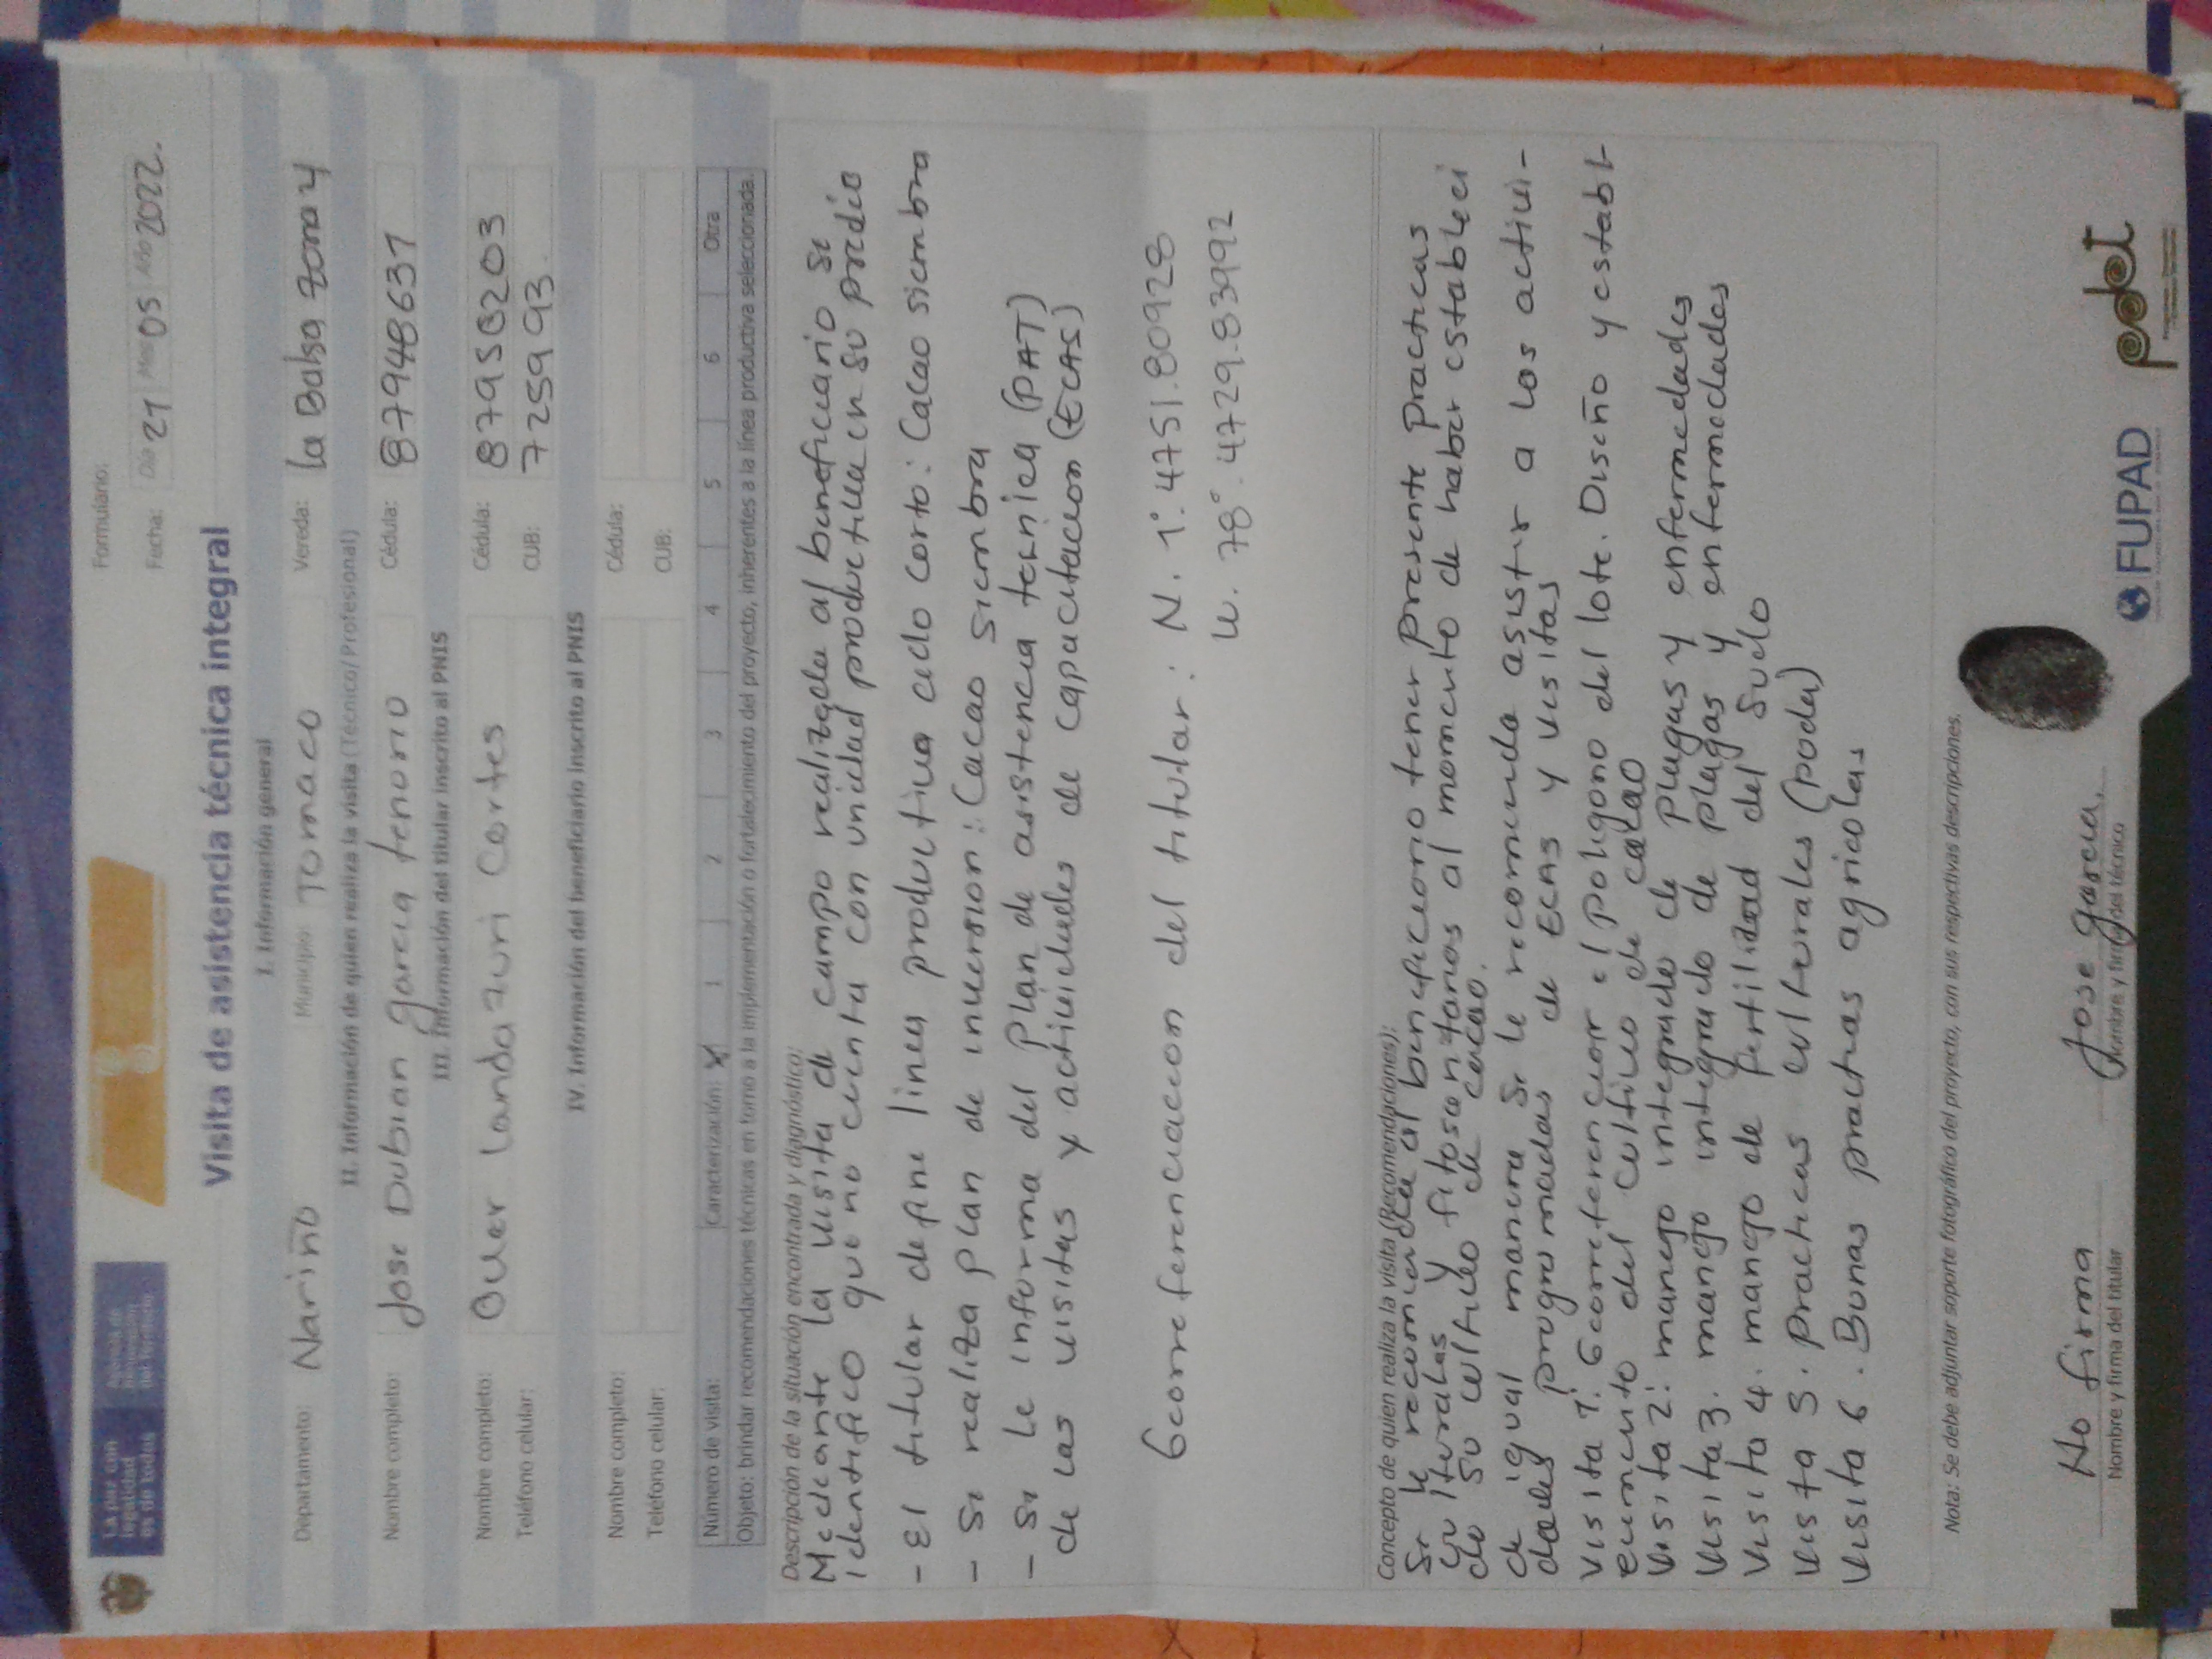 La paz con
legalidad
es de todos
Agencia de
Renovación
del Territorio
Formulario:
Fecha: Día 21 Mes 05 Año 2022.
Visita de asistencia técnica integral
I. Información general
Departamento: Nariño Municipio: Tomaco Vereda: la Balsa zona 4
II. Información de quien realiza la visita (Técnico/Profesional)
Nombre completo: Jose Dubian garcia tenorio Cédula: 87948631
III. Información del titular inscrito al PNIS
Nombre completo: Oller landazuri Cortes Cédula: 87956203
Teléfono celular: CUB: 7259 93.
IV. Información del beneficiario inscrito al PNIS
Nombre completo: Cédula:
Teléfono celular: CUB:
Número de visita: Caracterización: X 1 2 3 4 5 6 Otra
Objeto: brindar recomendaciones técnicas en torno a la implementación o fortalecimiento del proyecto, inherentes a la línea productiva seleccionada.
Descripción de la situación encontrada y diagnóstico:
Mediante la visita de campo realizada al beneficiario se
identifico que no cuenta con unidad productiva en su predio
- El titular define linea productiva ciclo corto: Cacao siembra
- Se realiza plan de inversion: Cacao siembra
- Se le informa del plan de asistencia tecnica (PAT)
de las visitas y actividades de capacitacion (ECAS)
Georreferenciacion del titular: N. 1°. 4751.80928
W. 78°. 4729.83992
Concepto de quien realiza la visita (Recomendaciones):
Se le recomienda al beneficiario tener presente practicas
culturales y fitosanitarias al momento de haber estableci
do su cultivo de cacao.
de igual manera se le recomienda asistir a los activi-
dades programadas de ECAS y visitas
visita 1: Georreferenciar el poligono del lote. Diseño y establ
ecimiento del cultivo de cacao
visita 2: manejo integrado de plagas y enfermedades
visita 3. manejo integrado de plagas y enfermedades
visita 4. manejo de fertilidad del suelo
visita 5. practicas culturales (poda)
visita 6. Bunas practicas agricolas
Nota: Se debe adjuntar soporte fotográfico del proyecto, con sus respectivas descripciones.
No firma
Nombre y firma del titular
Jose garcia.
Nombre y firma del técnico
FUPAD
pdet